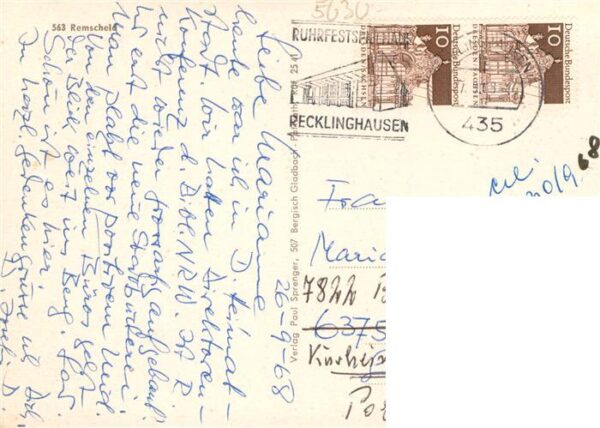 563 Remscheid
5630
RUHRFESTSPIELHAUS
RECKLINGHAUSEN
435
10
Deutsche Bundespost
10
Deutsche Bundespost
26-9-68
Liebe Marianne
heute war ich in D. Heimat-
stadt. Wir hatten Direktoren-
Konferenz d. Bibl. NRW. Ist D.
nicht wieder grossartig aufgebaut!
Und erst die neue Stadtbücherei.
Man platzt vor positivem Neid.
Von den einzelnen Büros geht
der Blick weit ins Berg. Land.
Schön ist es hier.
In herzl. Gedenken grüsse ich Dich
Verlag Paul Sprenger, 507 Bergisch Gladbach
68
Frau
Maria
7822
6375
Kirchzar